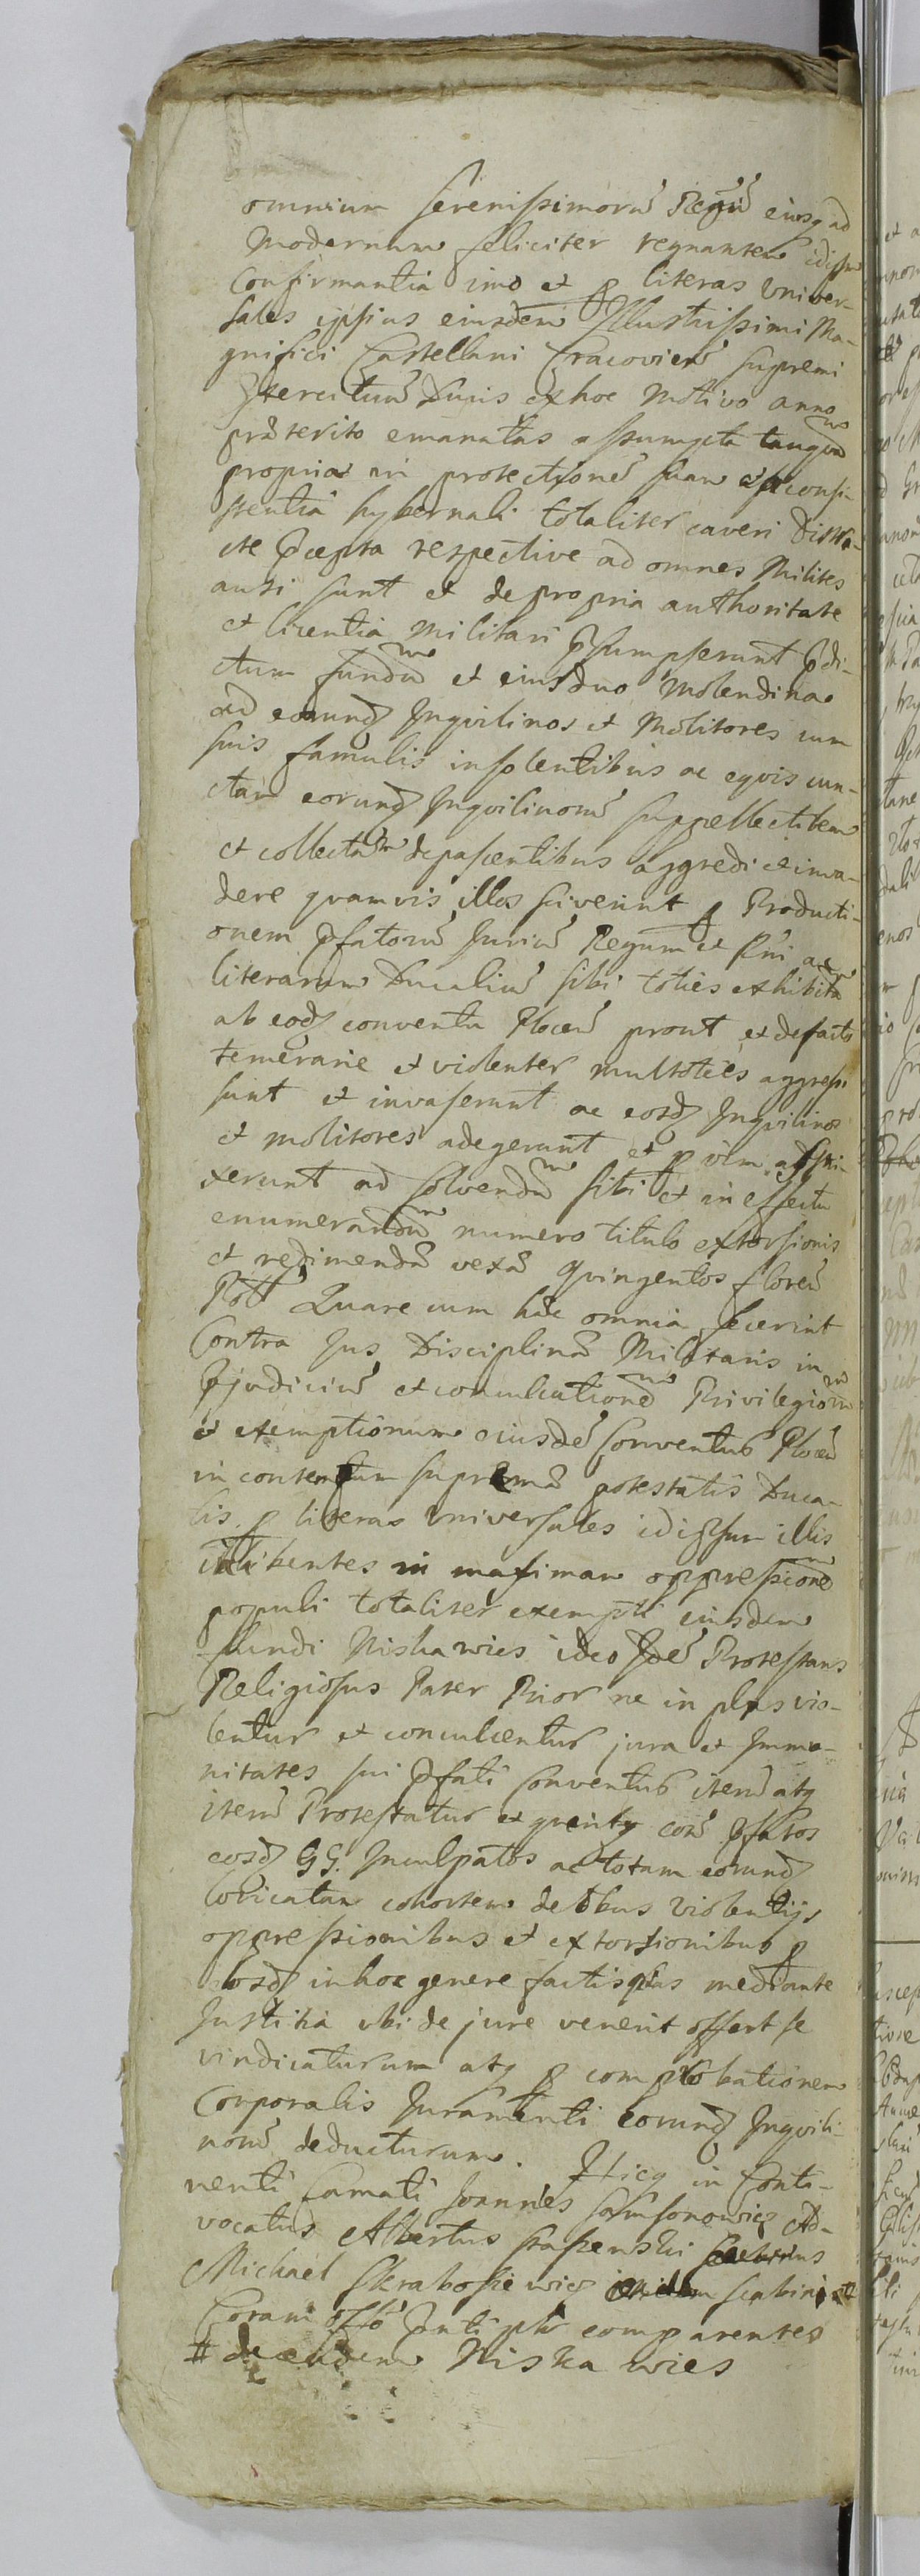 omnium serenissimorũ Regũ eiusq ad
Modernum feliciter regnantem idipsum
confirmantia imo et p literas vniver-
sales ipsius eiusdem Illustrissimi Ma-
gnifici Castellani Cracovien̄ supremi
Exercituum Ducis ex hoc Motivo anno
præterito emanatas assumpta tanqvam
propria in protectionẽ suam et a consi-
stentia hybernali totaliter caveri distri-
cte p̄cepta respective ad omnes Milites
ausi sunt et de propria authoritate
et licentia Militari p̄sumpserunt p̄di-
ctum fundum et eius duo Molendina
ad eorund Inqvilinos et Molitores cum
suis famulis insolentibus ac eqvis cun-
ctam eorund Inqvilinorũ suppellectilem
et collectam depascentibus aggredi et inva-
dere qvamvis illos sciverint p Producti-
onem p̄fatorũ Juriũ Regum et R̄ni ac
literarum Ducaliũ sibi toties exhibitam
ab eod conventu Plocen̄ prout et defacto
temerarie et violenter multoties aggressi
sunt et invaserunt ac eosd Inqvilinos
et molitores adegerunt et p vim adstri-
xerunt ad solvendum sibi et in effectu
enumerandum numero titulo extorsionis
et redimendæ vexæ qvingentos floren̄
Poll Quare cum hæc omnia fecerint
Contra Jus Disciplinæ Militaris in
p̄judiciũ et conculcationem Privilegiorum
et exemptionum eiusdẽ Conventus Plocen̄
in contemptum supremæ potestatis Duca-
lis p literas vniversales idipsum illis
inhibentes in maximam oppressionem
populi totaliter exempti eiusdem
fundi Niska wies ideo Idẽ Protestans
Religiosus Pater Prior ne in plus vio-
lentur et conculcentur jura et Immu-
nitates sui p̄fati Conventus iterũ atq
iterũ Protestatur et qveritur corã p̄fatos
eosd GG. Inculpatos ac totam eorund
loricatam cohortem de tbus violentijs
oppressionibus et extorsionibus p
hosd in hoc genere factis mediante
Justitia vbi de jure venerit offert se
vindicaturum atq p comprobationem
Corporalis Juramenti eorund Inqvili-
norũ deducturum. Hicq in Conti-
nenti Famati Joannes Samsonowicz Ad-
vocatus Albertus
Michael scabini
Coram off̄o p̄nti pl̄r comparentes
# de eadem Niska wies